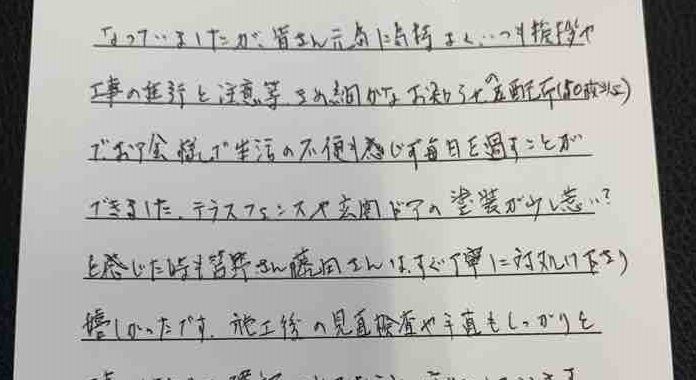 なっていましたが、皆さん元気に気持よく、いつも挨拶や
工事の進行と注意等、きめ細かなお知らせの配布(150枚以上)
でお陰様で生活の不便も感じず毎日を過すことが
できました。テラスフェンスや玄関ドアの塗装が少し悪い?
と感じた時も菅野さん藤田さんはすぐ丁寧に対処け下さり
嬉しかったです。施工後の見直検査や手直もしっかりと